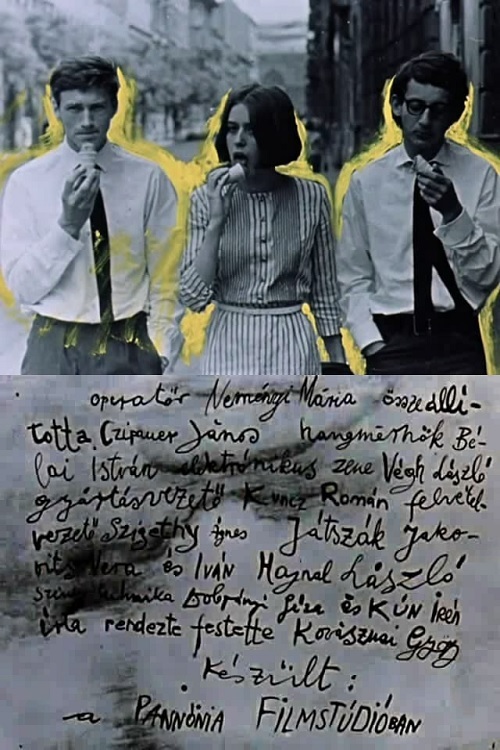 operatőr Neményi Mária összeállí-
totta Czipauer János hangmérnök Bé-
lai István elektrónikus zene Végh László
gyártásvezető Kunz Román felvétel-
vezető Szigethy Ágnes Játszák Jako-
vits Vera és IVÁN Hajnal László
színes technika Dobrányi Géza és KÚN Irén
írta rendezte festette Kovásznai György
Készült:
a PANNÓNIA FILMSTÚDIÓBAN